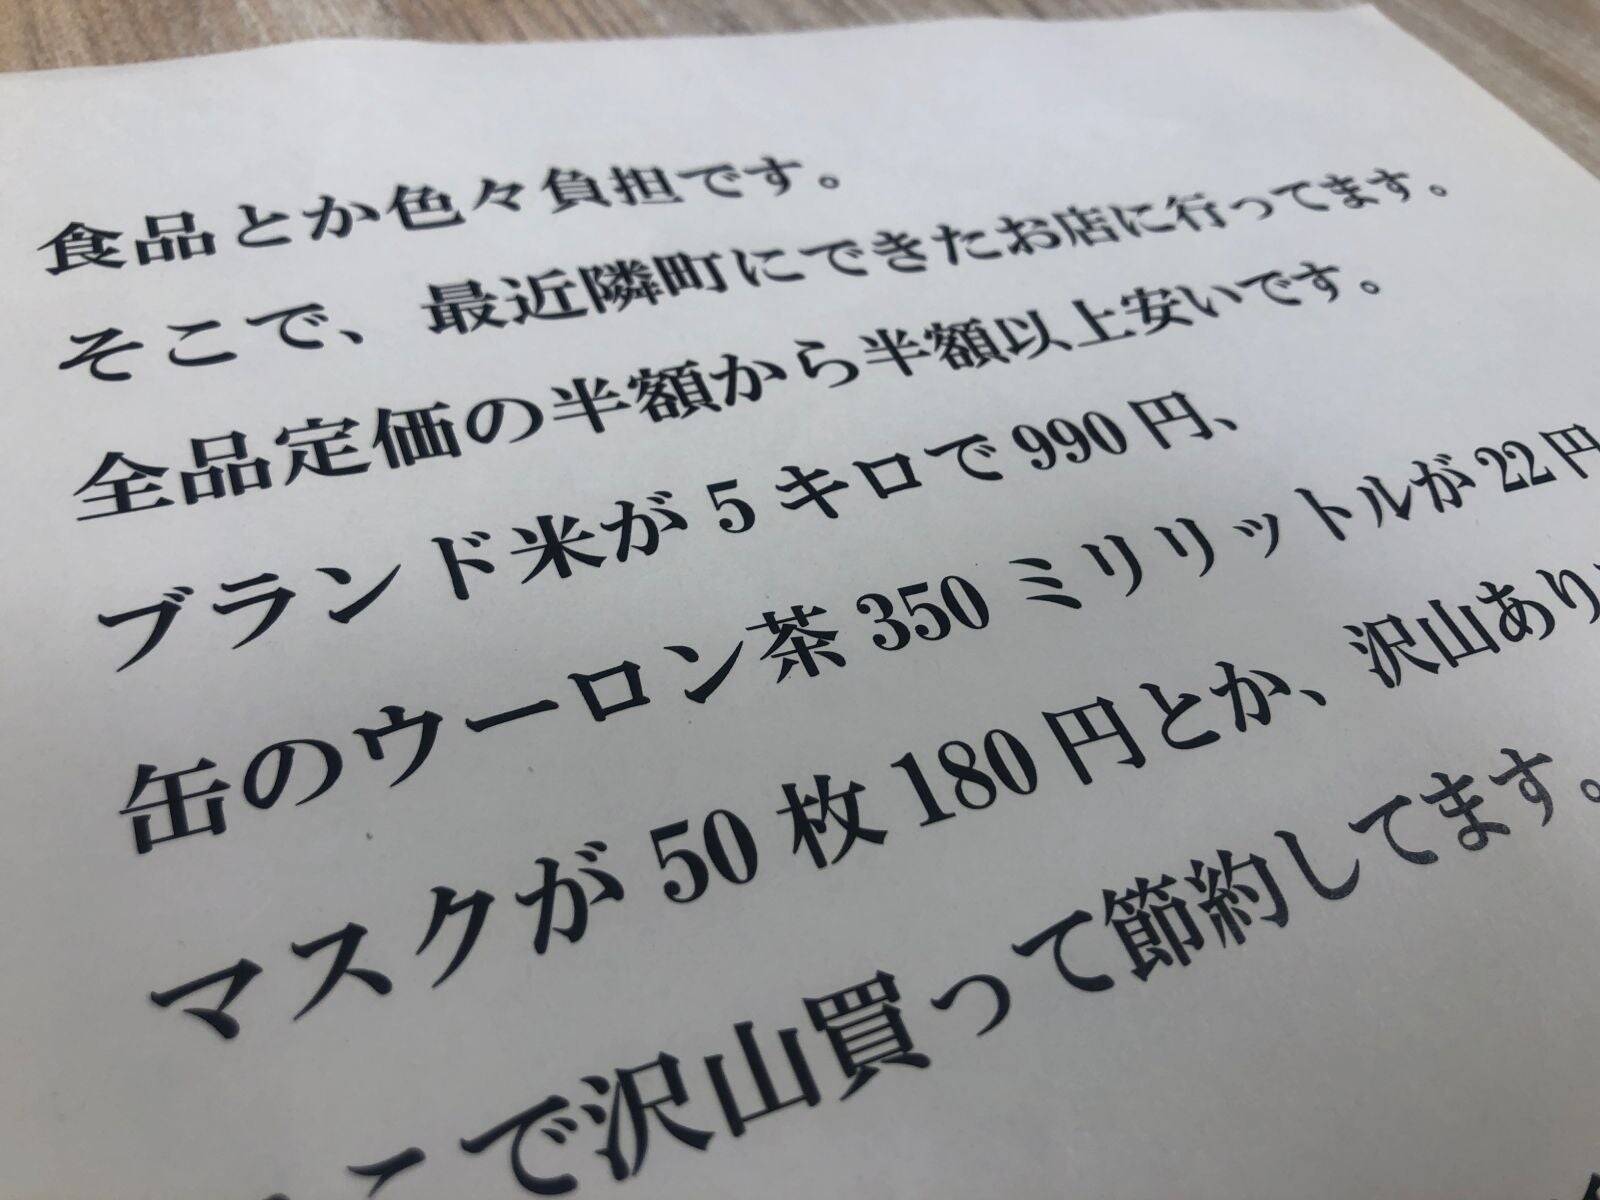 食品とか色々負担です。
そこで、最近隣町にできたお店に行ってます。
全品定価の半額から半額以上安いです。
ブランド米が5キロで990円、
缶のウーロン茶350ミリリットルが22円
マスクが50枚180円とか、沢山あり
こで沢山買って節約してます。